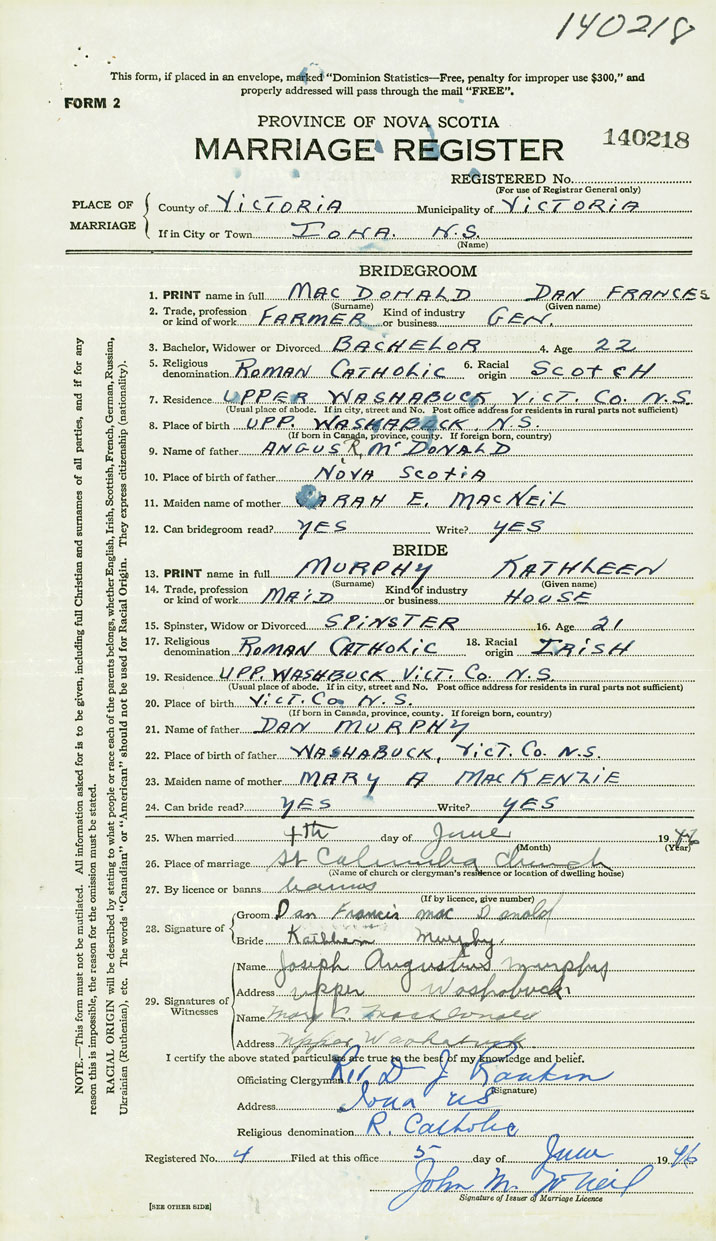 140218
This form, if placed in an envelope, marked "Dominion Statistics—Free, penalty for improper use $300," and
properly addressed will pass through the mail "FREE".
FORM 2
PROVINCE OF NOVA SCOTIA
MARRIAGE REGISTER 140218
REGISTERED No.
(For use of Registrar General only)
PLACE OF MARRIAGE
County of VICTORIA Municipality of VICTORIA
If in City or Town IONA. N.S.
(Name)
BRIDEGROOM
1. PRINT name in full MAC DONALD DAN FRANCES
(Surname) (Given name)
2. Trade, profession or kind of work FARMER Kind of industry or business GEN.
3. Bachelor, Widower or Divorced BACHELOR 4. Age 22
5. Religious denomination ROMAN CATHOLIC 6. Racial origin SCOTCH
7. Residence UPPER WASHABUCK VICT. CO. N.S.
(Usual place of abode. If in city, street and No. Post office address for residents in rural parts not sufficient)
8. Place of birth UPP. WASHABACK N.S.
(If born in Canada, province, county. If foreign born, country)
9. Name of father ANGUS R. McDONALD
10. Place of birth of father NOVA SCOTIA
11. Maiden name of mother SARAH E. MACNEIL
12. Can bridegroom read? YES Write? YES
BRIDE
13. PRINT name in full MURPHY KATHLEEN
(Surname) (Given name)
14. Trade, profession or kind of work MAID Kind of industry or business HOUSE
15. Spinster, Widow or Divorced SPINSTER 16. Age 21
17. Religious denomination ROMAN CATHOLIC 18. Racial origin IRISH
19. Residence UPP. WASHBUCK VICT. CO N.S.
(Usual place of abode. If in city, street and No. Post office address for residents in rural parts not sufficient)
20. Place of birth VICT. CO N.S.
(If born in Canada, province, county. If foreign born, country)
21. Name of father DAN MURPHY
22. Place of birth of father WASHABUCK, VICT. CO. N.S.
23. Maiden name of mother MARY A MACKENZIE
24. Can bride read? YES Write? YES
25. When married 4th day of June 1946
(Month) (Year)
26. Place of marriage St Columba Church
(Name of church or clergyman's residence or location of dwelling house)
27. By licence or banns banns
(If by licence, give number)
28. Signature of
Groom Dan Francis mac Donald
Bride Kathleen Murphy.
29. Signatures of Witnesses
Name Joseph Augustus murphy
Address upper Washabuck
Name Mary C. MacDonald
Address Upper Washabuck
I certify the above stated particulars are true to the best of my knowledge and belief.
Officiating Clergyman Rev D J Rankin
(Signature)
Address Iona NS
Religious denomination R. Catholic
Registered No. 4 Filed at this office 5 day of June 1946
John M. McNeil
Signature of Issuer of Marriage Licence
[SEE OTHER SIDE]
NOTE.—This form must not be mutilated. All information asked for is to be given, including full Christian and surnames of all parties, and if for any
reason this is impossible, the reason for the omission must be stated.
RACIAL ORIGIN will be described by stating to what people or race each of the parents belongs, whether English, Irish, Scottish, French, German, Russian,
Ukrainian (Ruthenian), etc. The words "Canadian" or "American" should not be used for Racial Origin. They express citizenship (nationality).